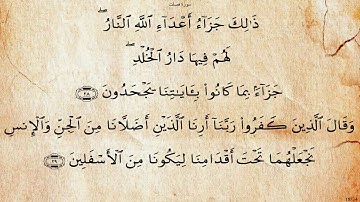 سورة فصلت
ذَٰلِكَ جَزَآءُ أَعۡدَآءِ ٱللَّهِ ٱلنَّارُۖ
لَهُمۡ فِيهَا دَارُ ٱلۡخُلۡدِ
جَزَآءَۢ بِمَا كَانُواْ بِـَٔايَٰتِنَا يَجۡحَدُونَ ٢٨
وَقَالَ ٱلَّذِينَ كَفَرُواْ رَبَّنَآ أَرِنَا ٱلَّذَيۡنِ أَضَلَّانَا مِنَ ٱلۡجِنِّ وَٱلۡإِنسِ
نَجۡعَلۡهُمَا تَحۡتَ أَقۡدَامِنَا لِيَكُونَا مِنَ ٱلۡأَسۡفَلِينَ ٢٩